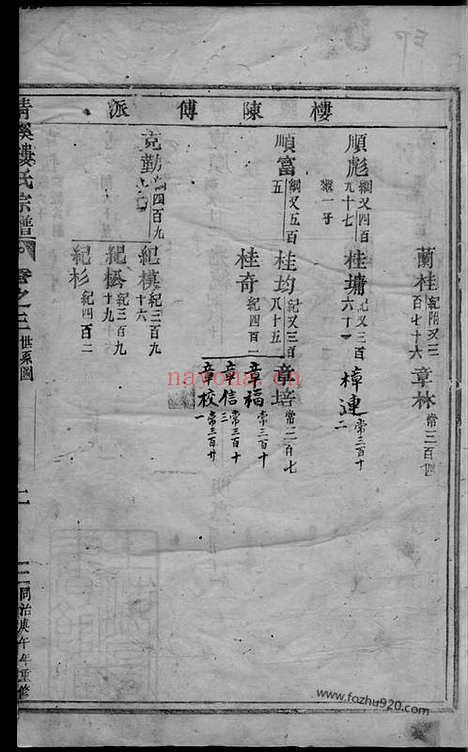 樓陳傅派
蘭桂 紀附又三百七十六
章林 常三百四
順彪 綱又四百九十七
桂墉 又三百六十
樟連 常三百十二
繼一子
順富 綱又五百五
桂均 紀又三百八十五
章培 常二百七
桂奇 紀四百一
章福 常三百十
章信 常三百十三
章校 常三百廿一
克勤 四百九
紀模 紀三百九十六
紀 紀三百九十九
紀杉 紀四百二
清溪樓氏宗譜
卷之三
世系圖
二
同治庚午年重修
nayona.cn
www.fazhu920.com